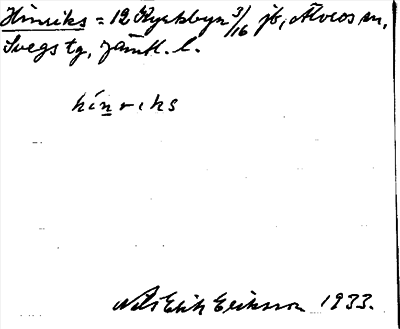 Hinriks = 12 Kyrkbyn 3/16 jb, Älvros sn,
Svegs tg, Jämtl. l.
hínriks
Nils Erik Eriksson 1933.